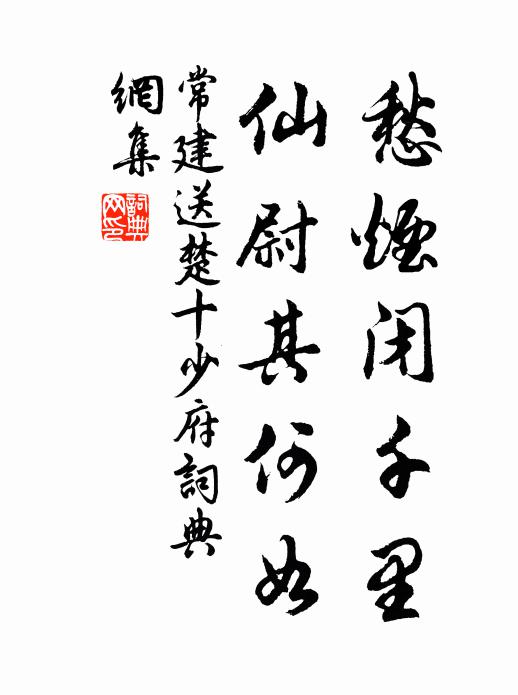 愁煙閉千里
仙尉其何如
常建送楚十少府詞典
網集
詞典網印